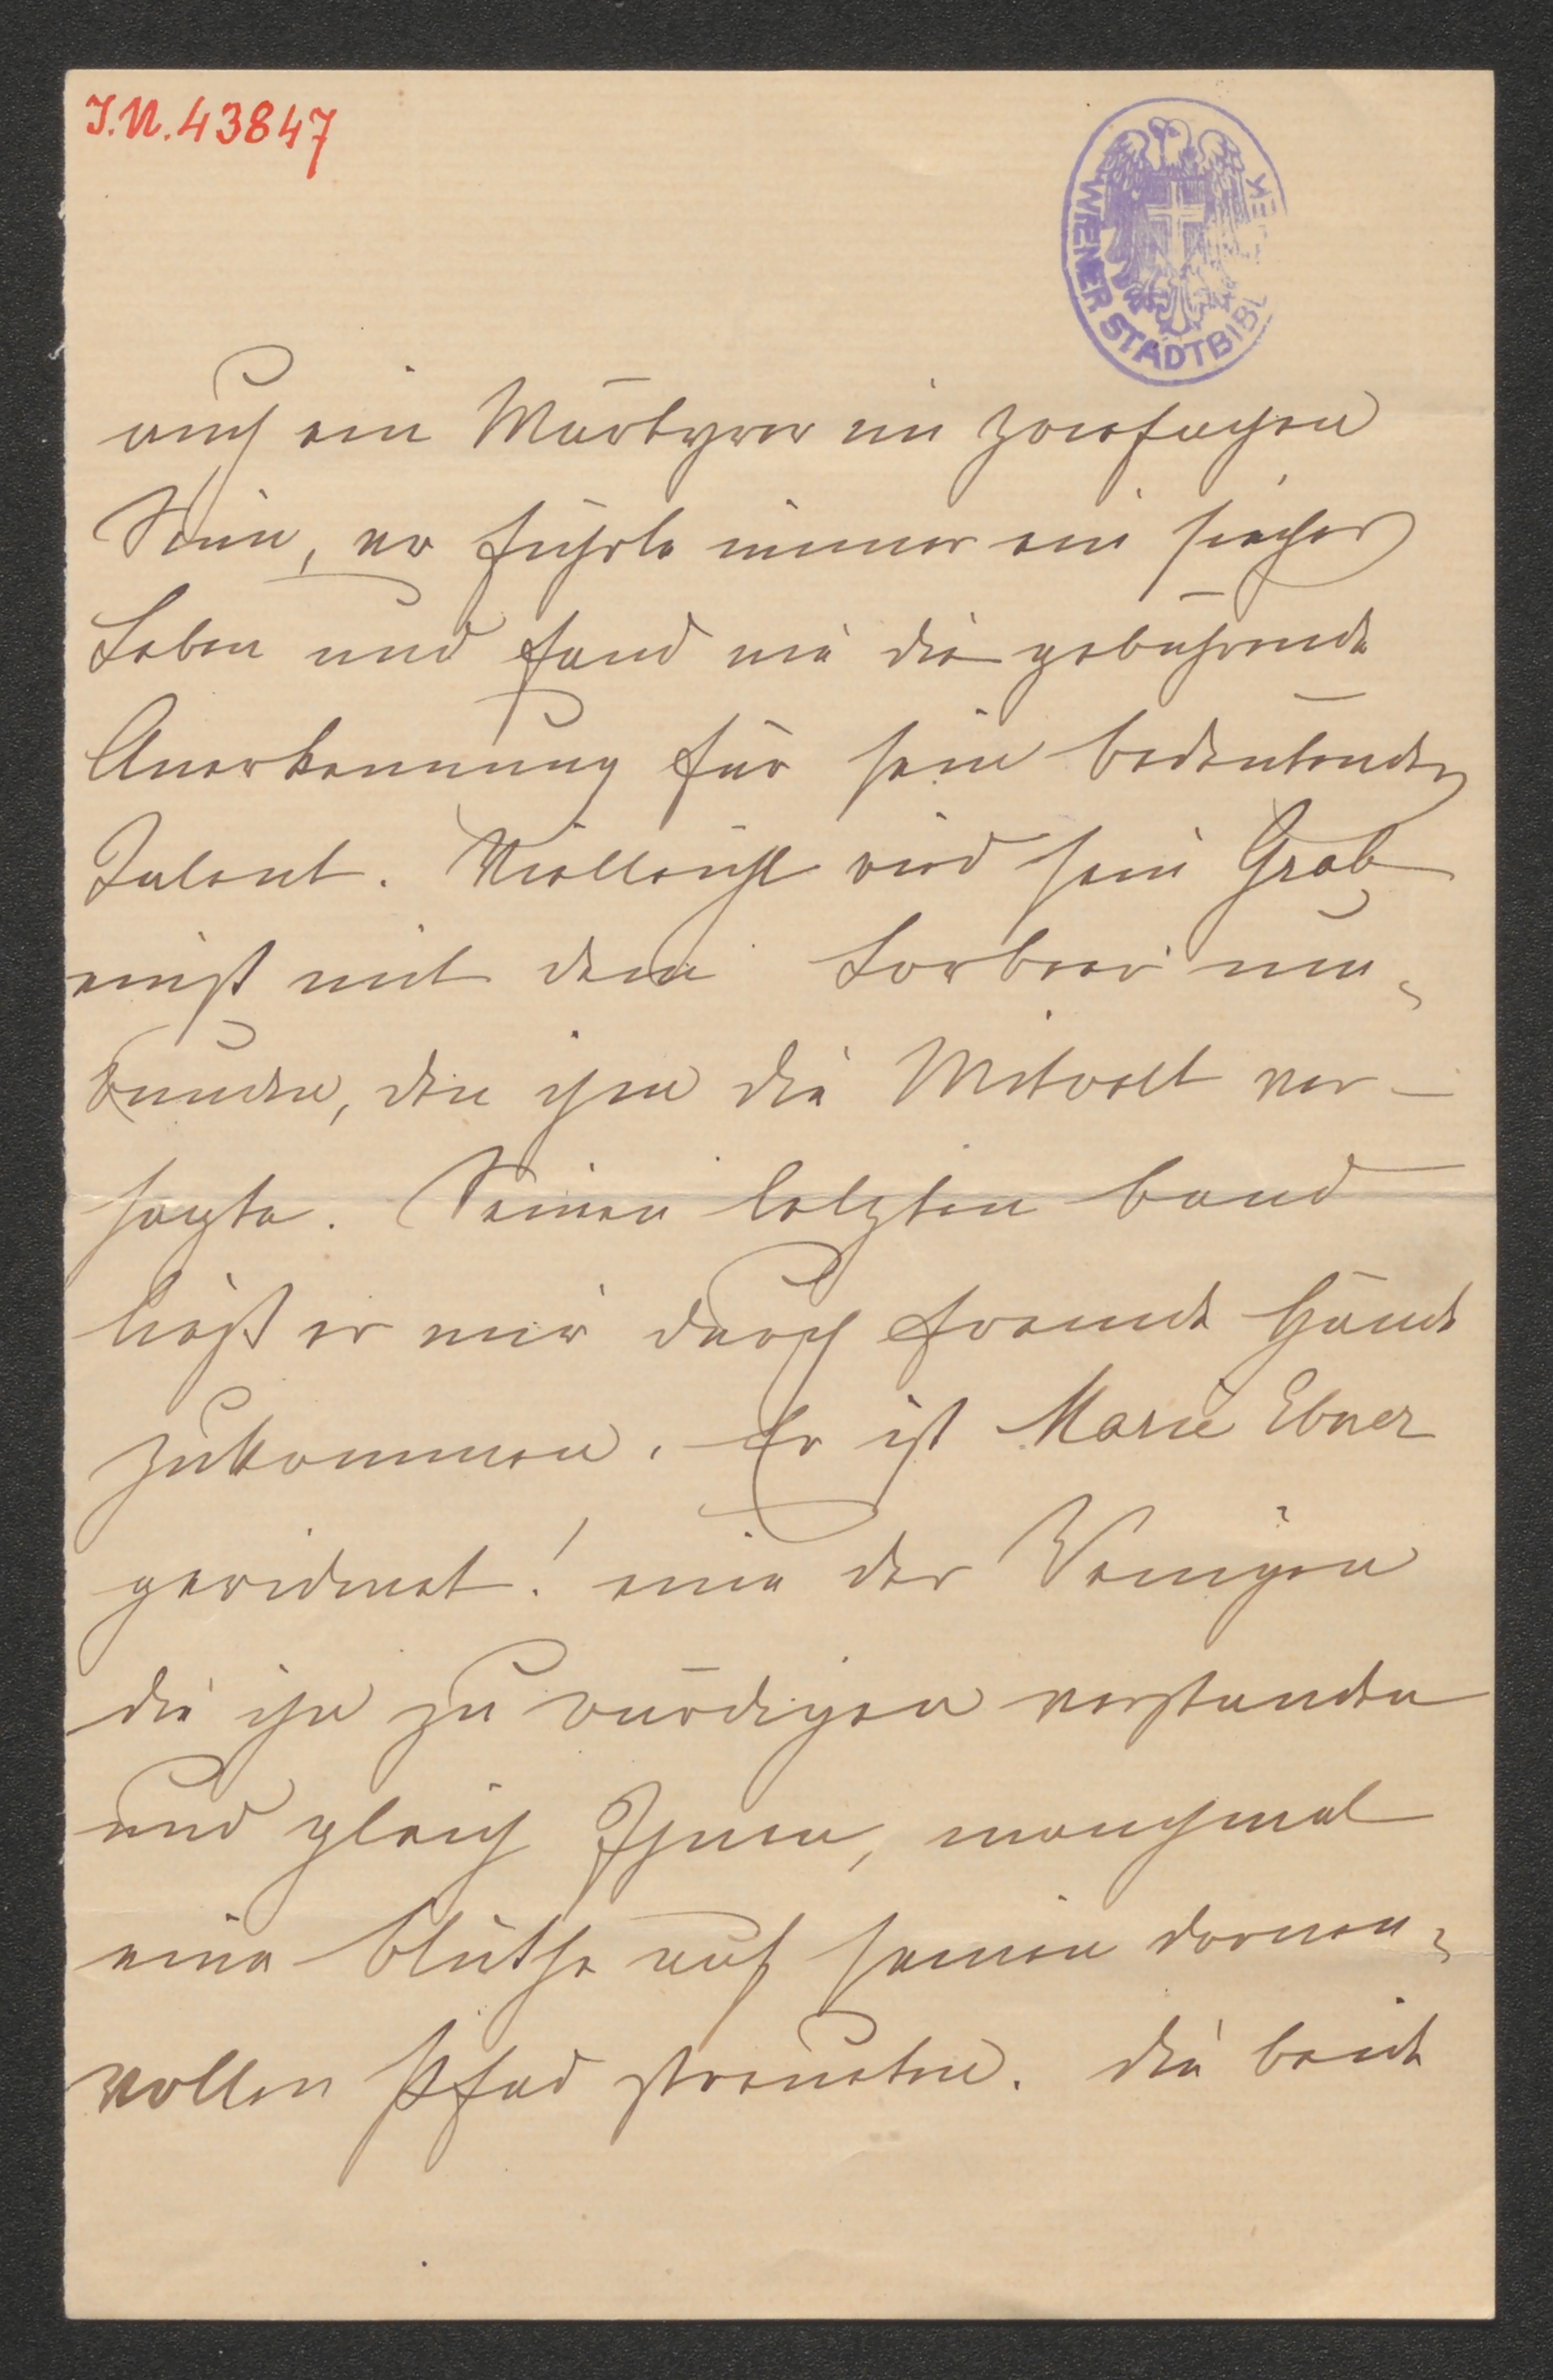 I.N. 43847
WIENER STADTBIBL
auch ein Märtyrer im zweifachen
Sinn, er führte immer ein sieches
Leben und fand nie die gebührende
Anerkennung für sein bedeutendes
Talent. Vielleicht wird sein Grab
einst mit dem Lorbeer um-
wunden, den ihm die Mitwelt ver-
sagte. Seinen letzten Band
ließ er mir durch fremde Hände
zukommen. Er ist Marie Ebner
gewidmet! eine der Wenigen
die ihn zu würdigen verstanden
und gleich Ihnen, manchmal
eine Blüthe auf seinen dornen-
vollen Pfad streuten. Die beide